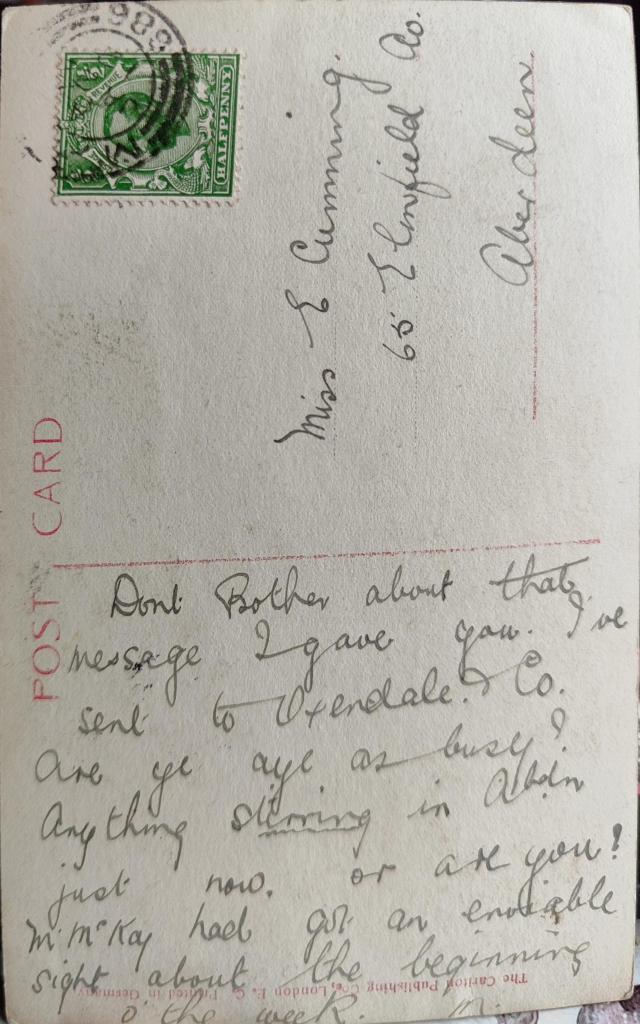 POST CARD
HALFPENNY
REVENUE
986
Miss E Cumming.
65 Elmfield Av.
Aberdeen.
Dont Bother about that
message I gave you. I've
sent to Oxendale & Co.
Are ye aye as busy?
Anything stirring in Abdn
just now. or are you!
Mr McKay had got an enviable
sight about the beginning
o' the week. M.
The Carlton Publishing Co., London E. C. Printed in Germany